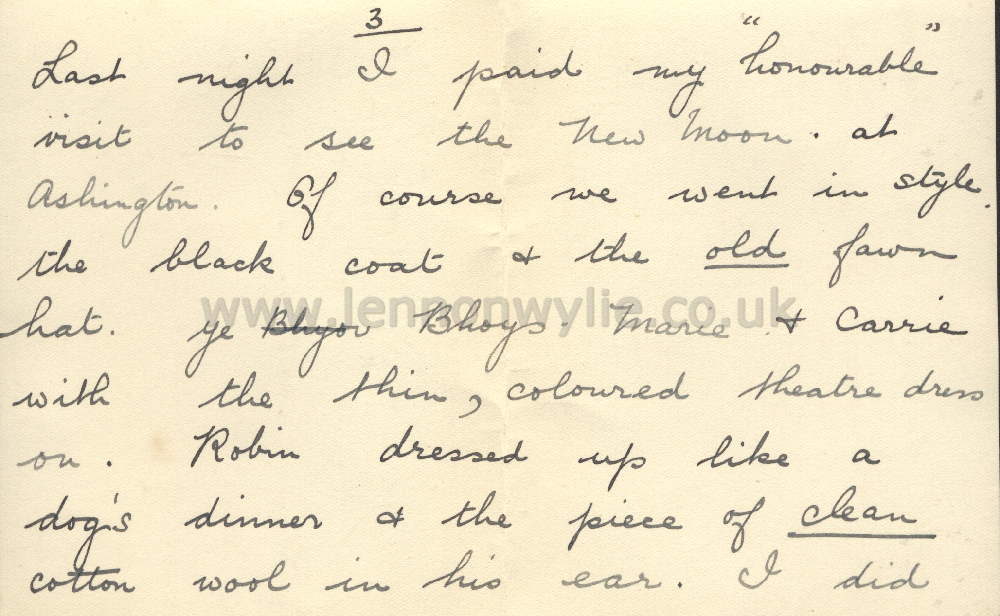 3
Last night I paid my "honourable"
visit to see the New Moon. at
Ashington. Of course we went in style.
the black coat & the old fawn
hat. ye Bhyov Bhoys. Marie & Carrie
www.lennonwylie.co.uk
with the thin, coloured theatre dress
on. Robin dressed up like a
dog's dinner & the piece of clean
cotton wool in his ear. I did